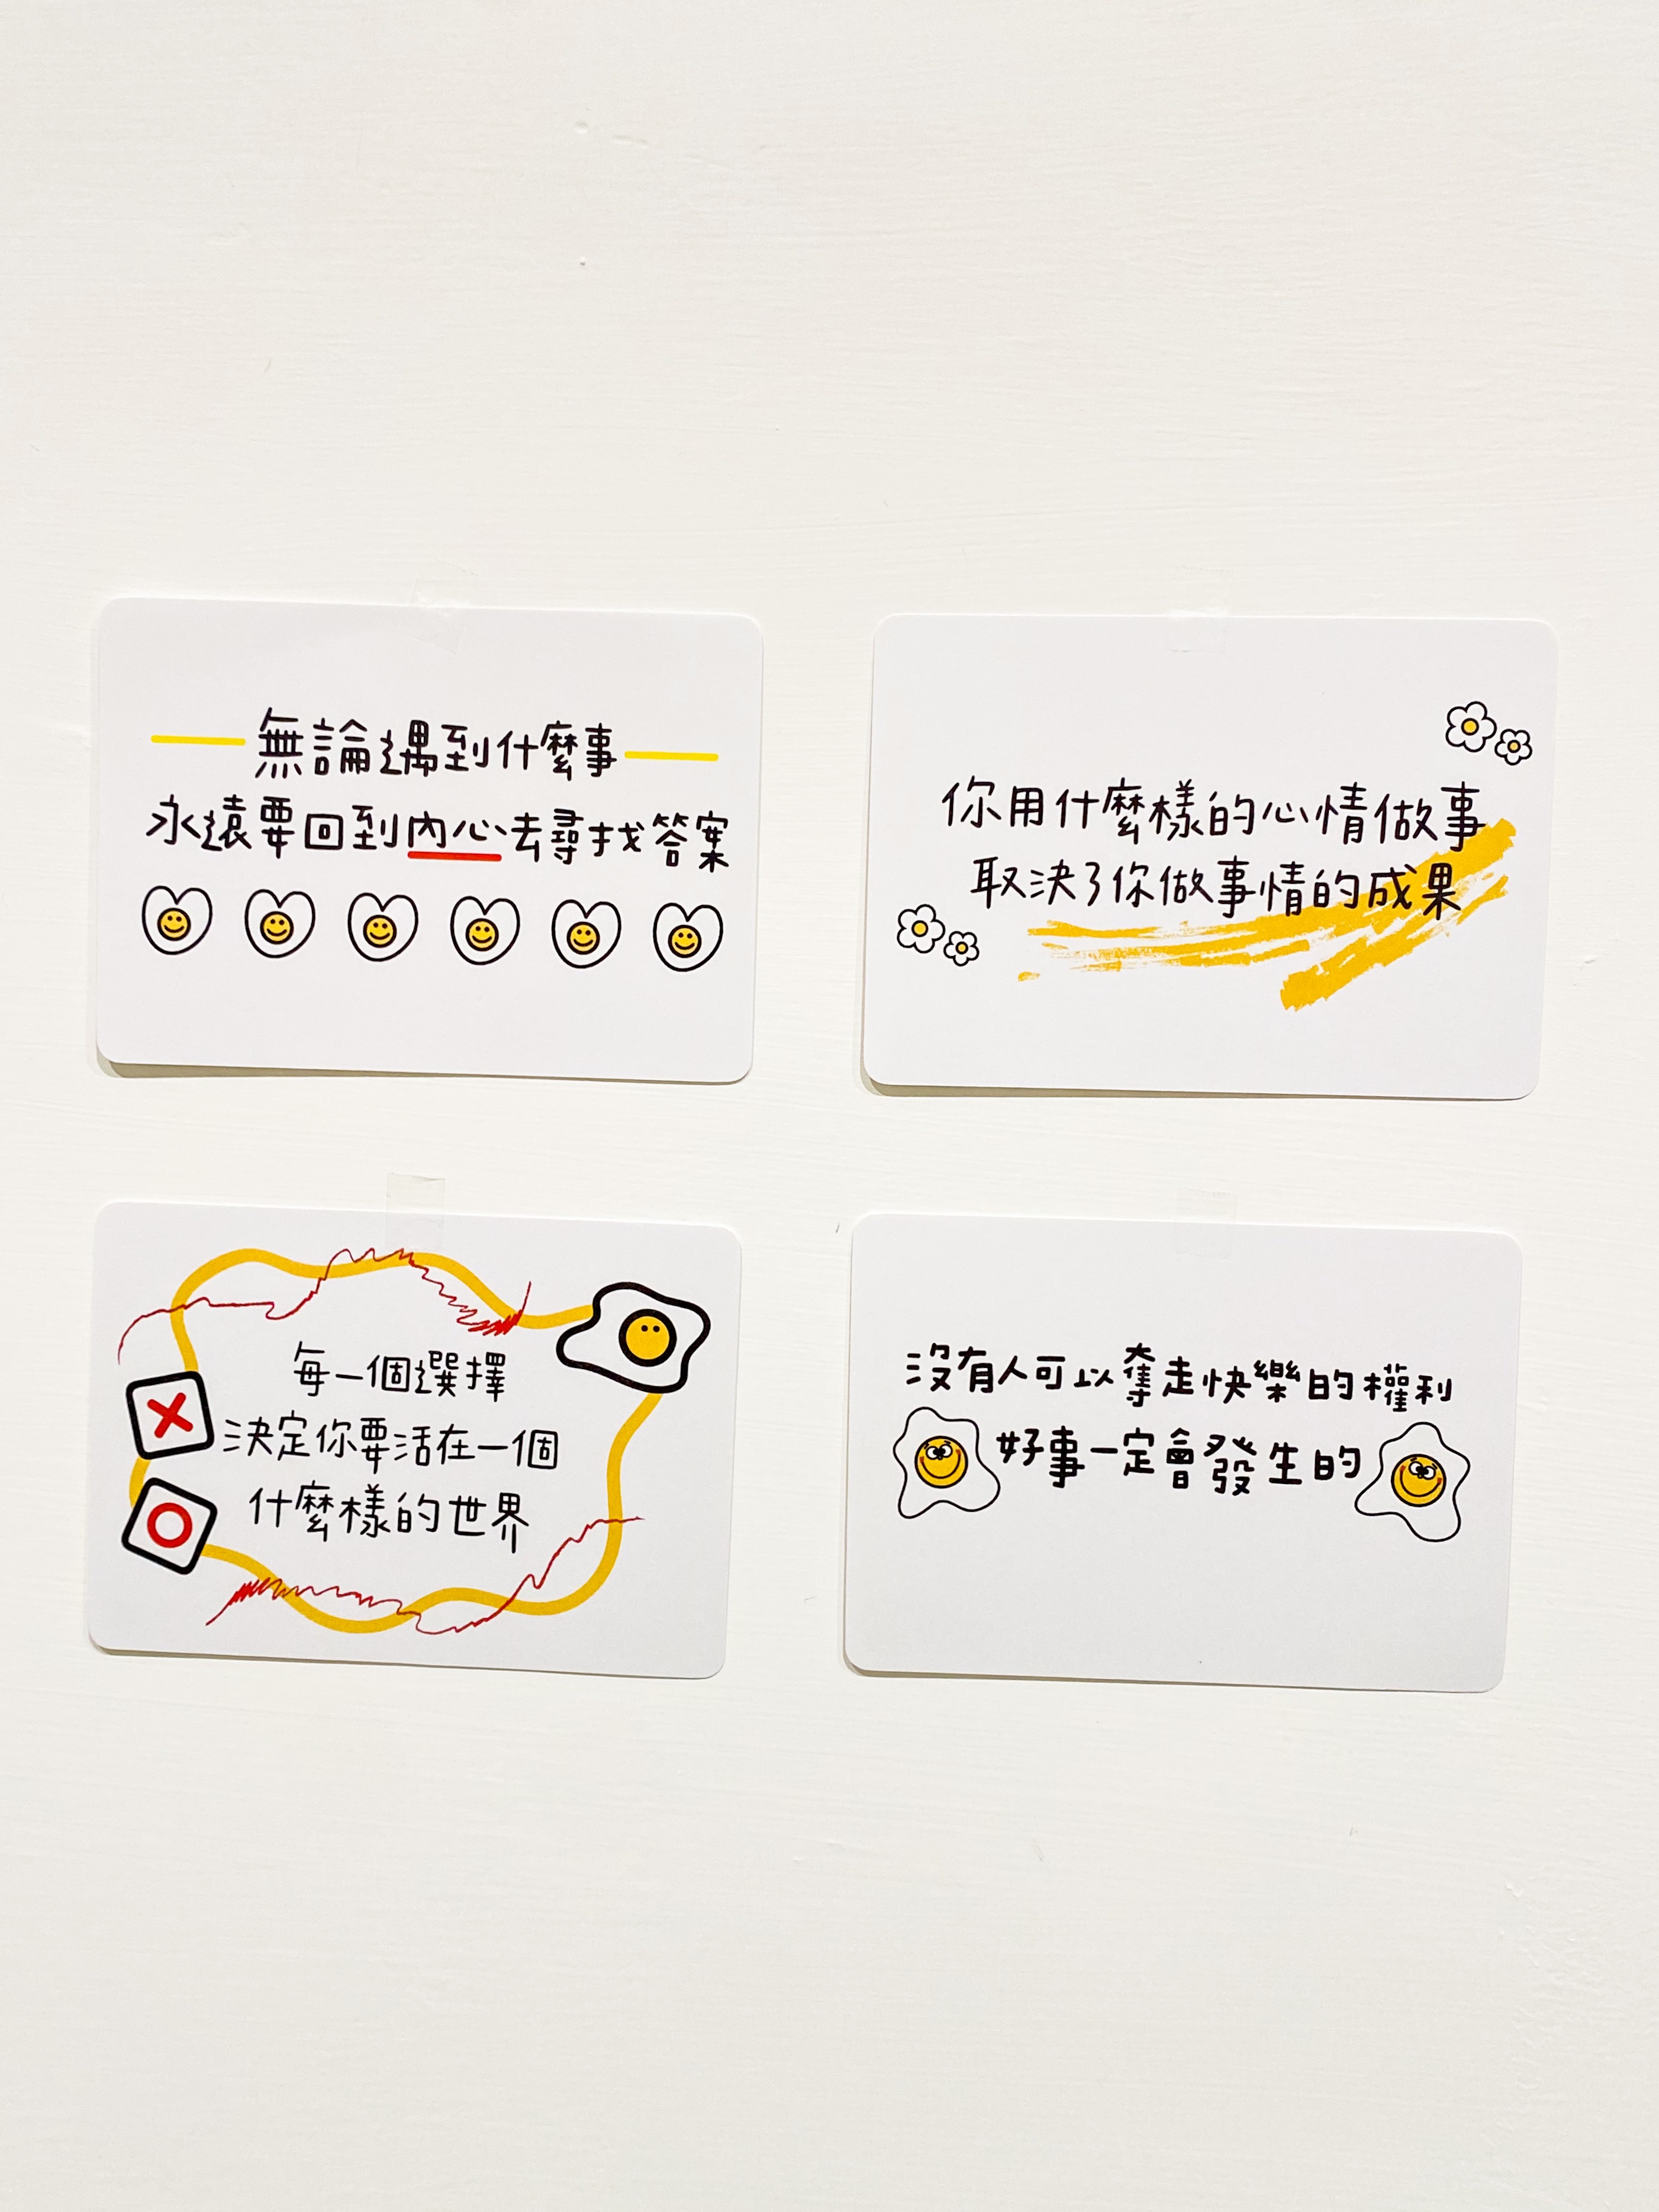 無論遇到什麼事
永遠要回到內心去尋找答案
你用什麼樣的心情做事
取決了你做事情的成果
每一個選擇
決定你要活在一個
什麼樣的世界
沒有人可以奪走快樂的權利
好事一定會發生的